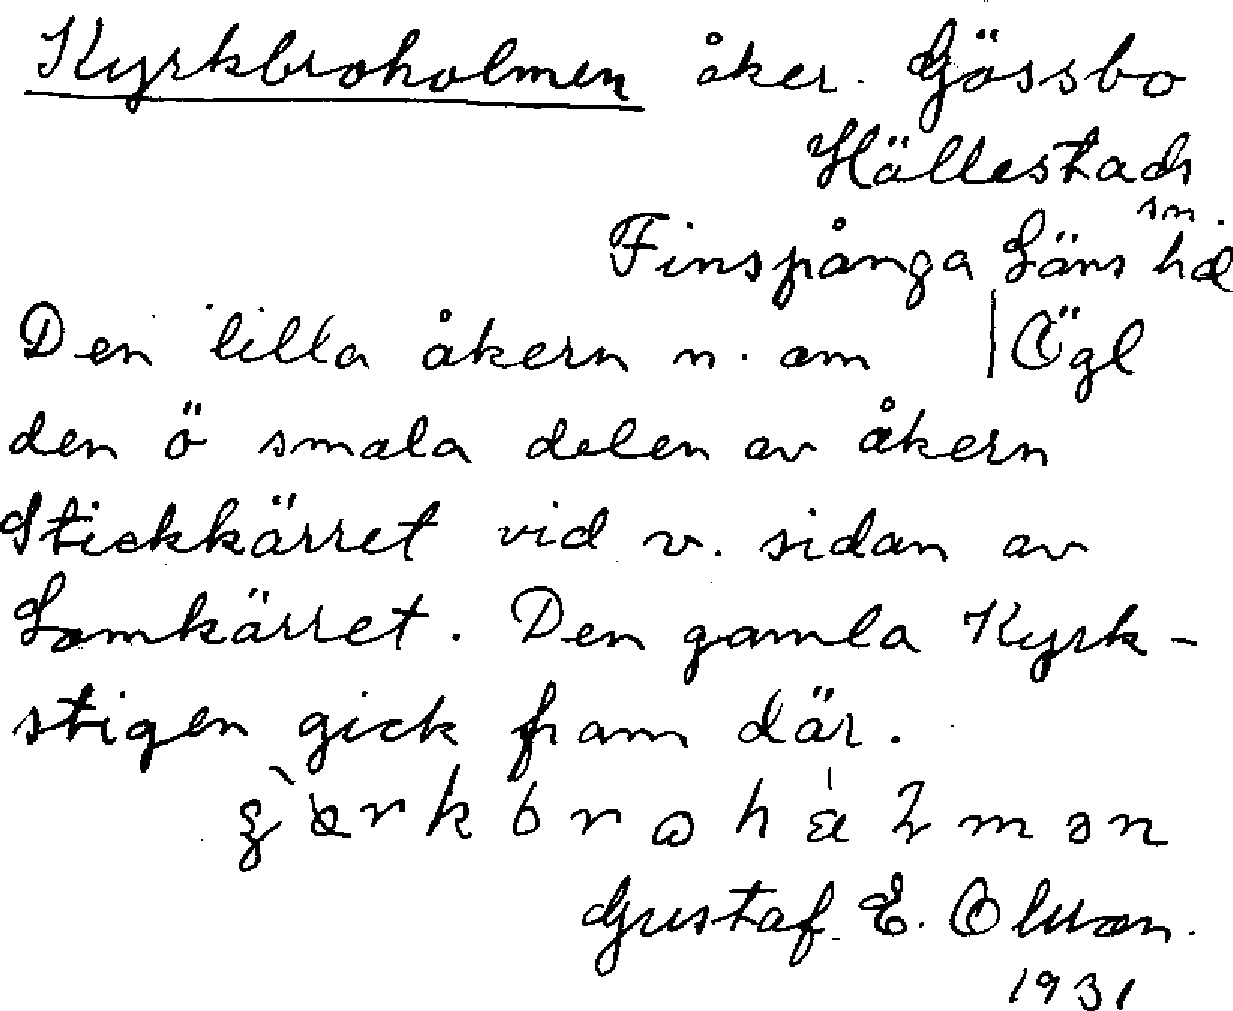 Kyrkbroholmen åker. Gössbo
Hällestads
sn.
Finspånga Läns hd
Den lilla åkern n. om | Ögl
den ö smala delen av åkern
Stickkärret vid v. sidan av
Lomkärret. Den gamla Kyrk-
stigen gick fram där.
Gustaf E. Olsson.
1931